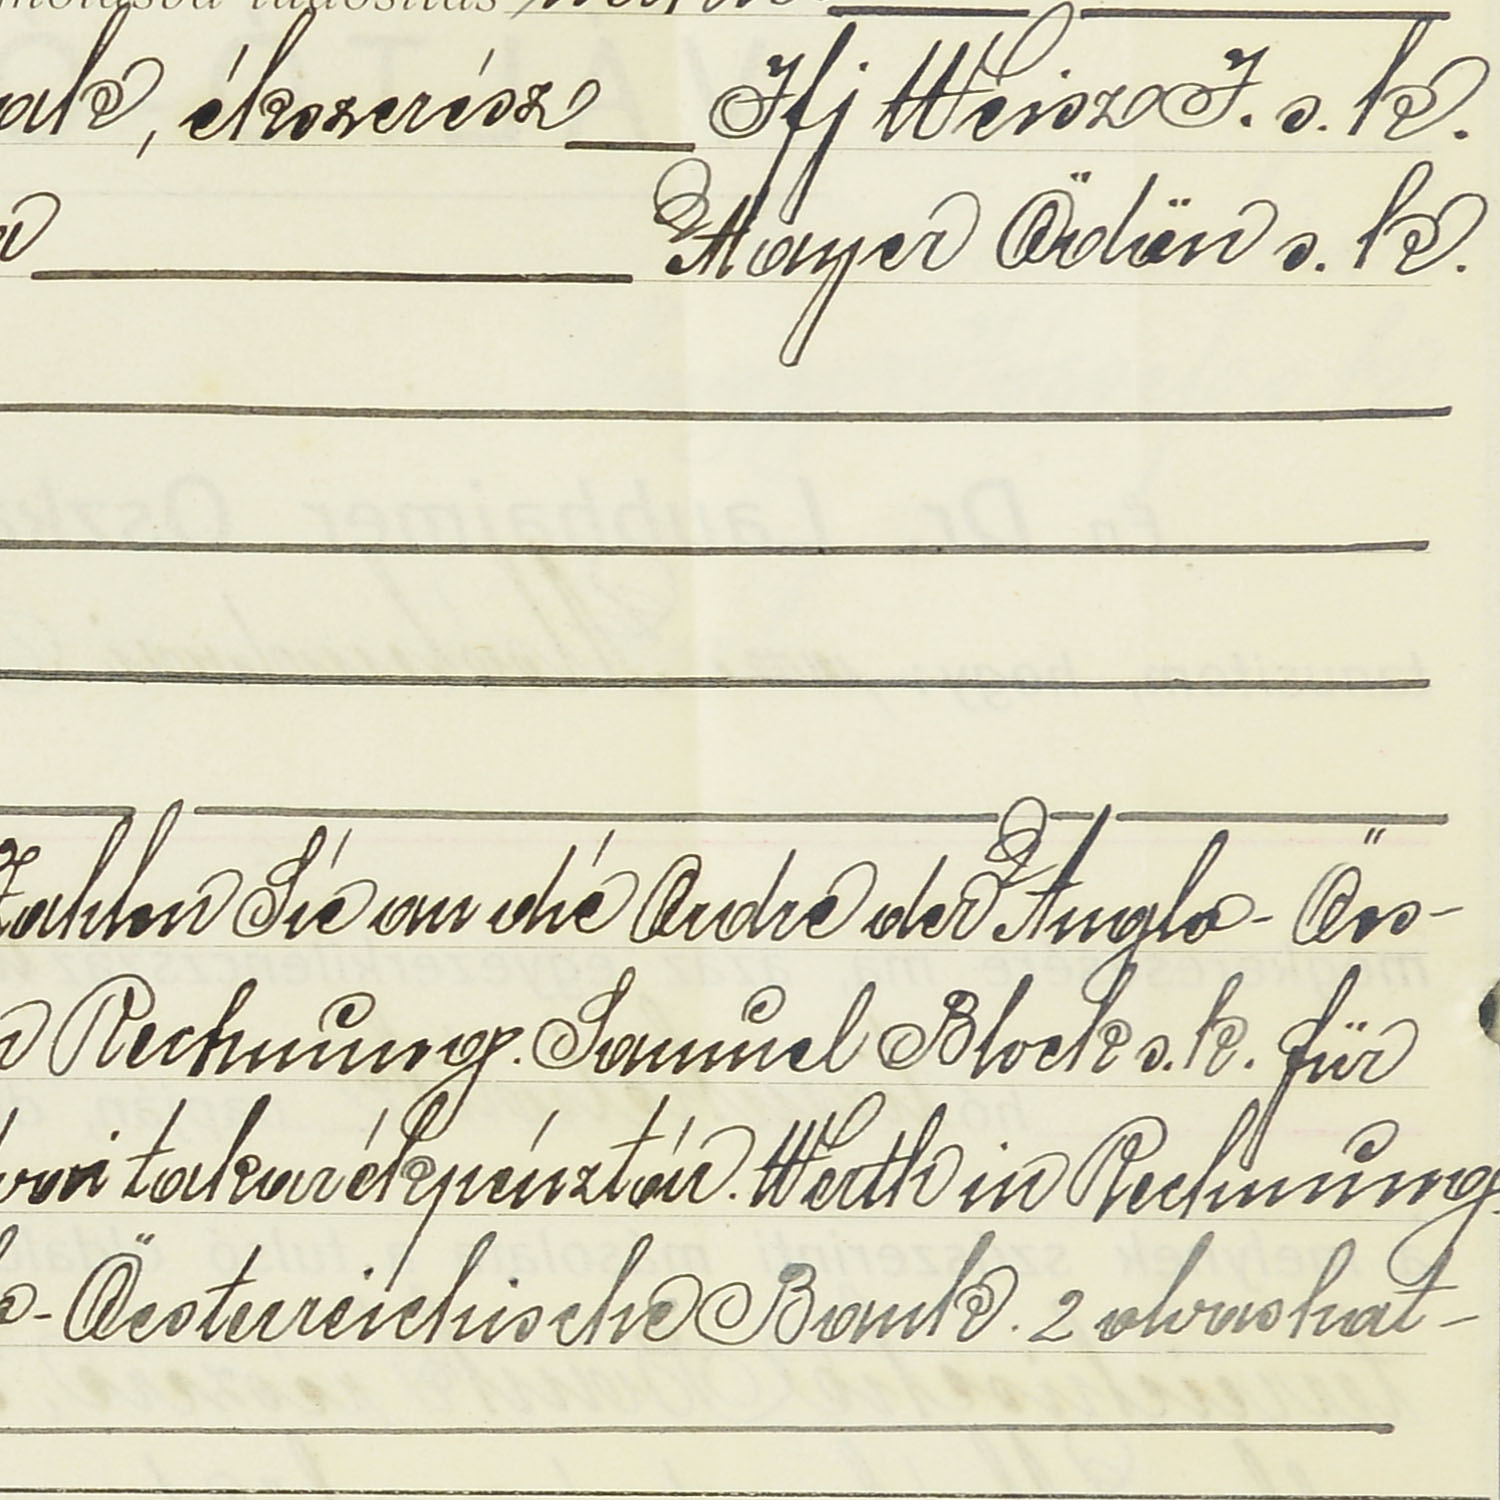 ékszerész Ifj Weisz J. s. k.
Mayer Ödön s. k.
Zahlen Sie an die Ordre der Anglo- Ös-
Rechnung. Samuel Block s. k. für
takarékpénztár. Werth in Rechnung.
- Öesterreichische Bank. 2 olvashat-